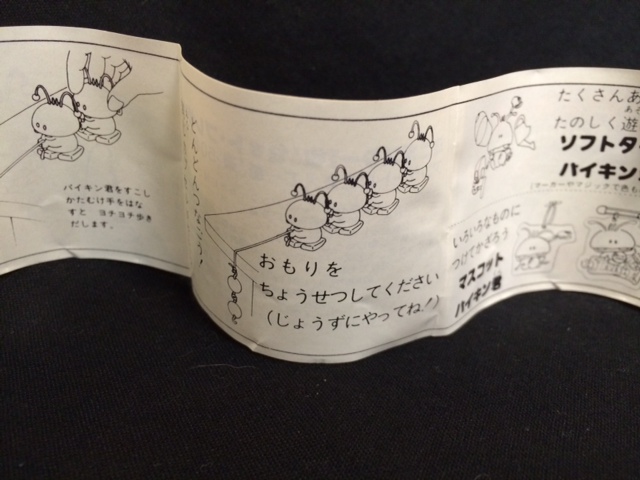 バイキン君をすこし
かたむけ手をはな
すと ヨチヨチ歩き
だします。
おもりを
ちょうせつしてください
(じょうずにやってね!)
たくさんあ
たのしく遊
ソフトタ
バイキン
いろいろなものに
つけてかざろう
マスコット
バイキン君